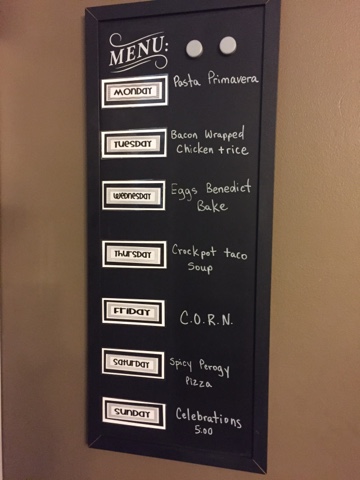 MENU:
MONDAY
Pasta Primavera
TUESDAY
Bacon Wrapped
Chicken + rice
WEDNESDAY
Eggs Benedict
Bake
THURSDAY
Crockpot taco
Soup
FRIDAY
C.O.R.N.
SATURDAY
Spicy Perogy
Pizza
SUNDAY
Celebrations
5:00